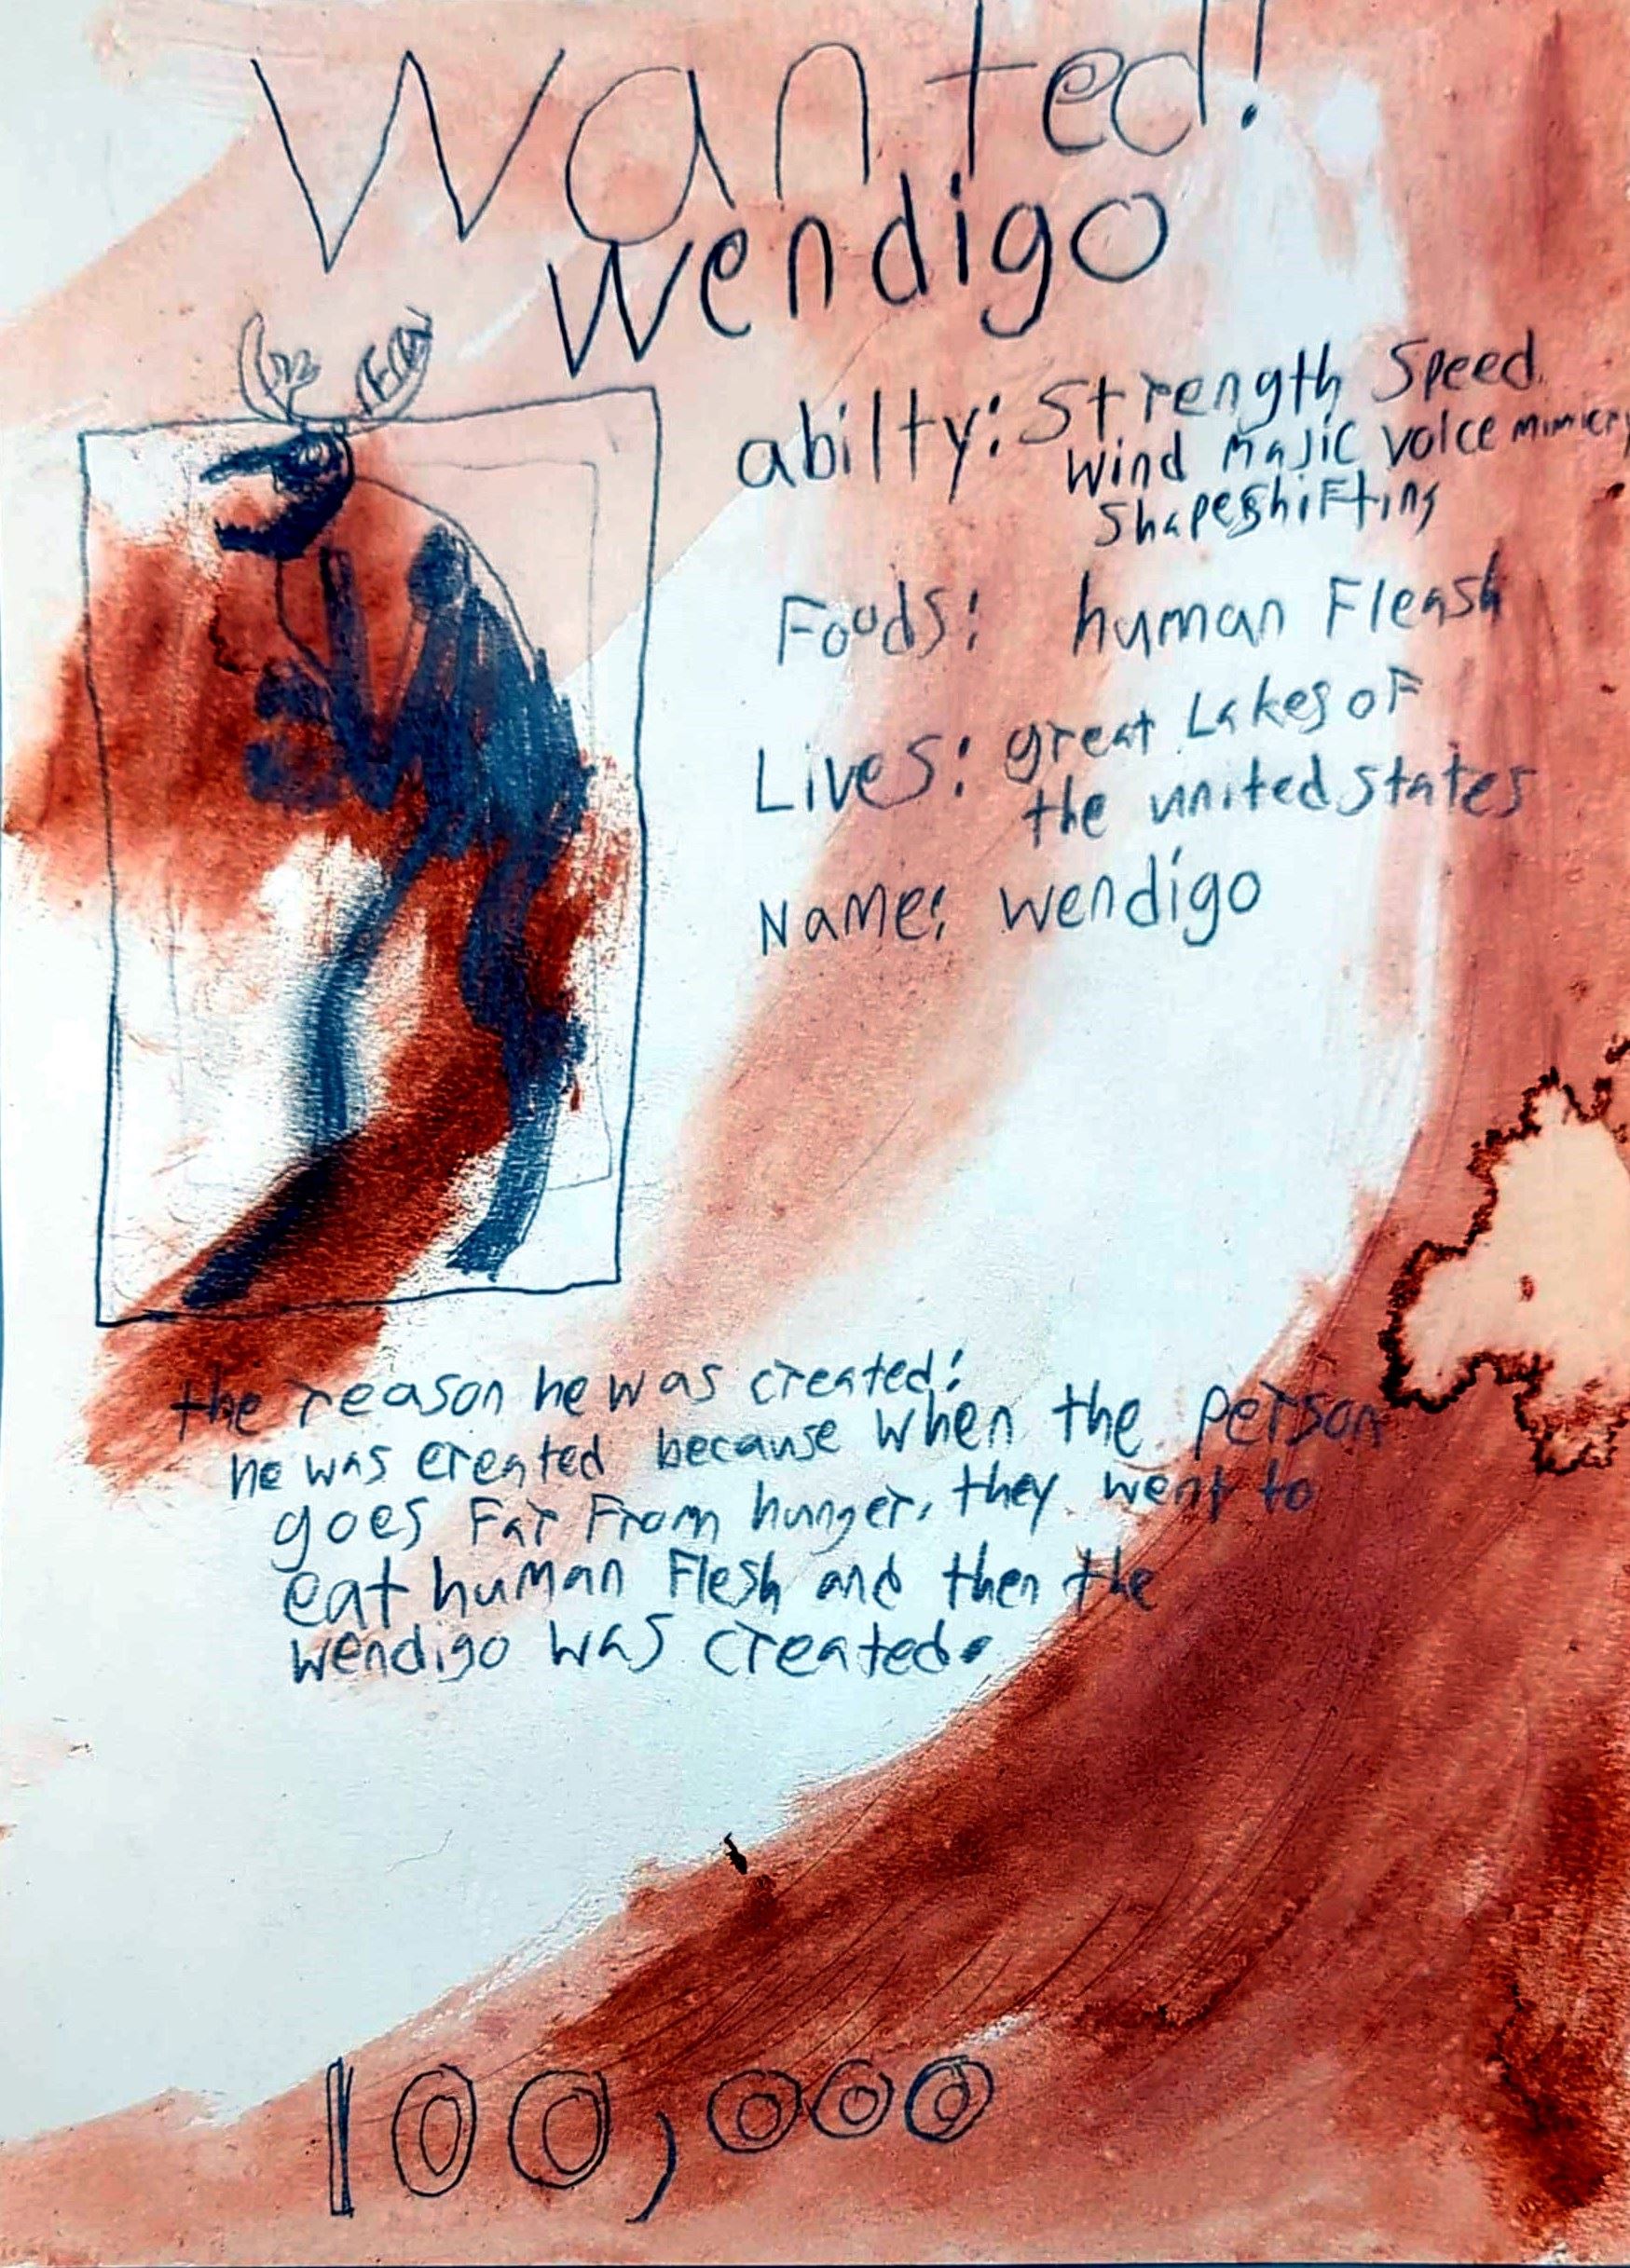 Wanted!
wendigo
abilty: Strength Speed
wind majic voice mimicry
Shapeshifting
Foods: human Fleash
Lives: great Lakes of
the united states
Name: wendigo
the reason he was created:
he was created because when the person
goes Far From hunger, they went to
eat human Flesh and then the
wendigo was created.
100,000